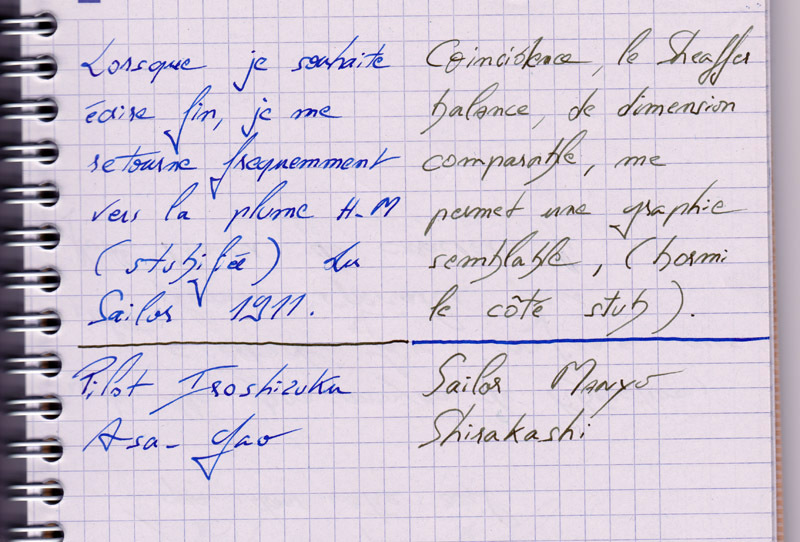 Lorsque je souhaite
écrire fin, je me
retourne frequemment
vers la plume H-M
(stubifiée) du
Sailor 1911.
Pilot Iroshizuku
Asa-gao
Coincidence, le Sheaffer
balance, de dimension
comparable, me
permet une graphie
semblable, (hormi
le côté stub).
Sailor Manyo
Shirakashi